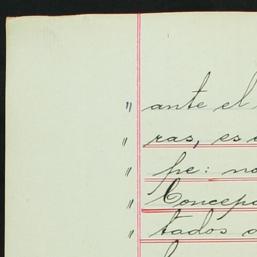 " ante el
" ras, es
" pe: no
" Concep
" tados